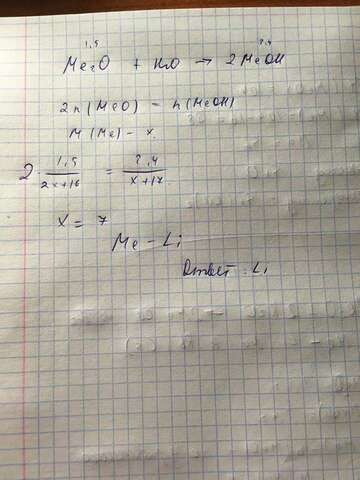 1,5 2,4
Me₂O + H₂O → 2MeOH
2n(MeO) = n(MeOH)
M(Me) - x.
2 · 1,5 / 2x+16 = 2,4 / x+17
x = 7
Me - Li
Ответ: Li